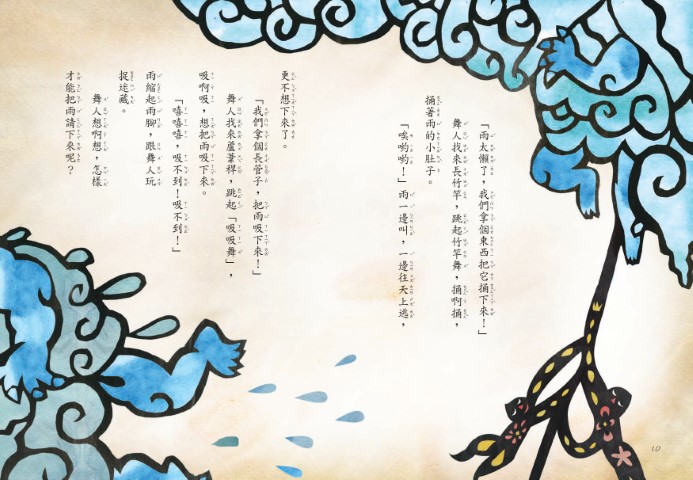 「雨太懶了，我們拿個東西把它捅下來！」
舞人找來長竹竿，跳起竹竿舞，捅啊捅，
捅著雨的小肚子。
「唉喲喲！」雨一邊叫，一邊往天上逃，
更不想下來了。
「我們拿個長管子，把雨吸下來！」
舞人找來蘆葦稈，跳起「吸吸舞」，
吸啊吸，想把雨吸下來。
「嘻嘻嘻，吸不到！吸不到！」
雨縮起雨腳，跟舞人玩
捉迷藏。
舞人想啊想，怎樣
才能把雨請下來呢？
10